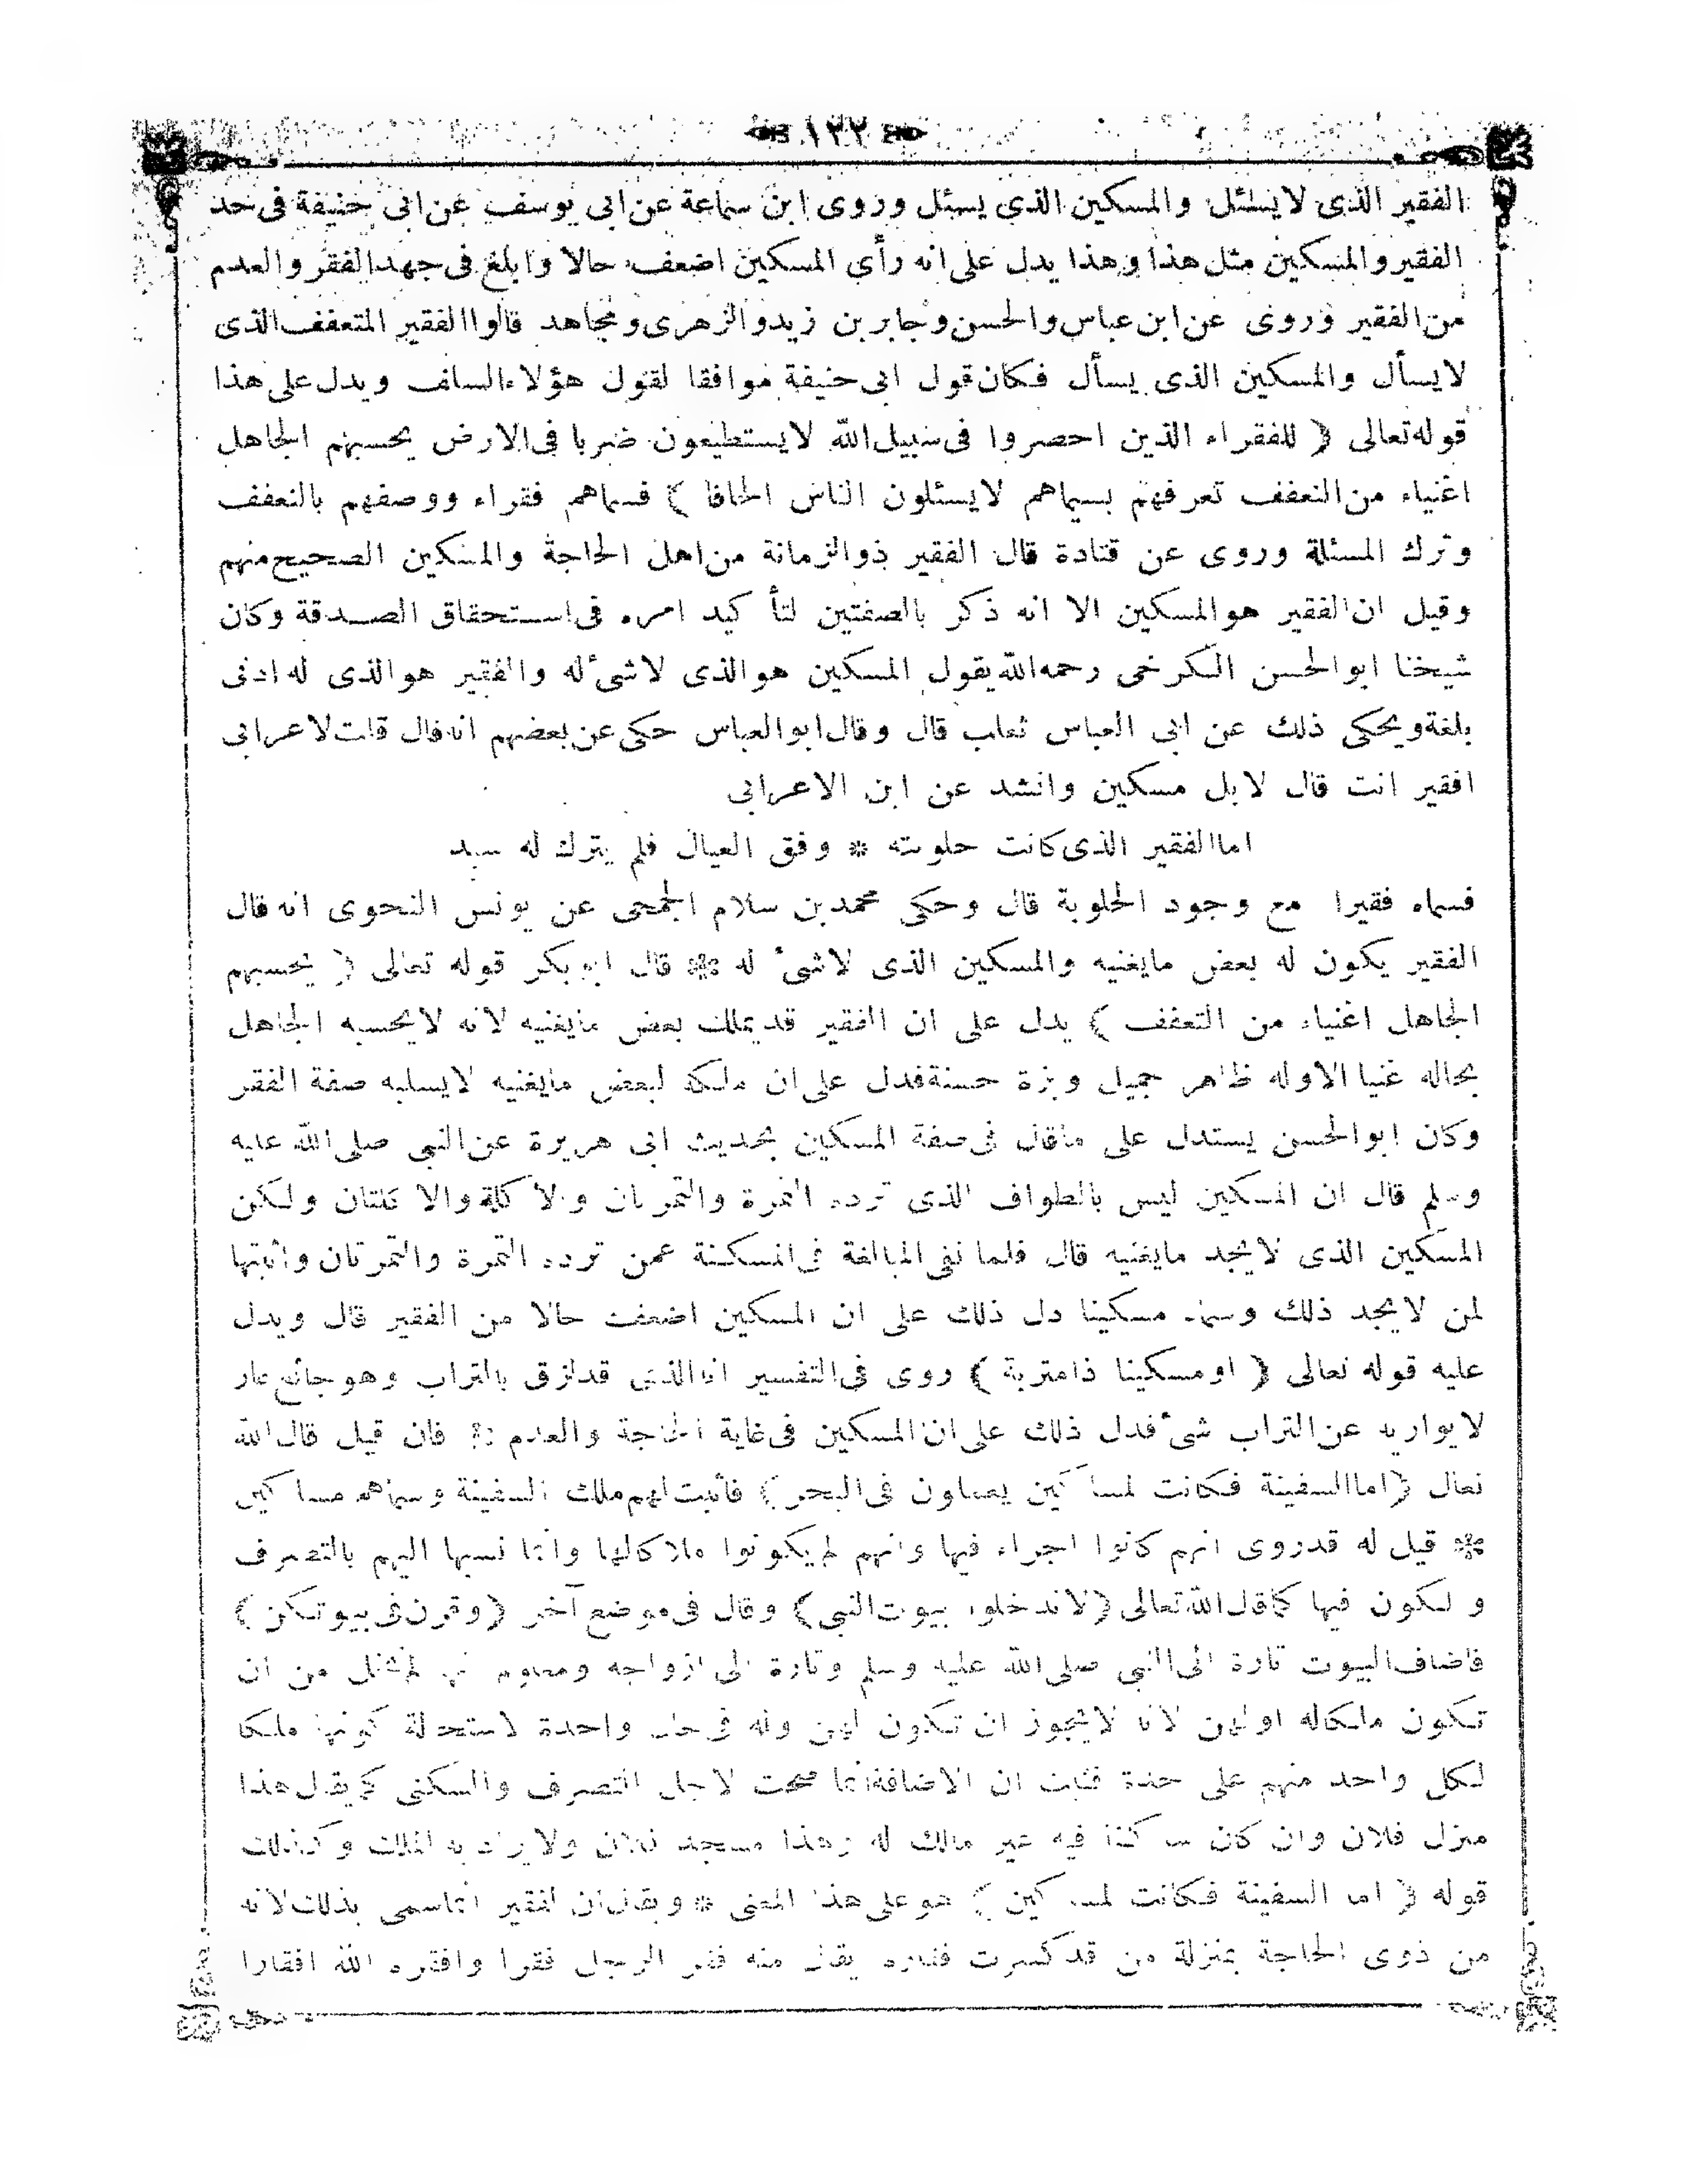 ١٢٢
الفقير الذى لايسئل والمسكين الذى يسئل وروى ابن سماعة عن ابى يوسف عن ابى حنيفة فى حد
الفقير والمسكين مثل هذا وهذا يدل على انه رأى المسكين اضعف حالا وابلغ فى جهد الفقر والعدم
من الفقير وروى عن ابن عباس والحسن وجابر بن زيد والزهرى ومجاهد قالوا الفقير المتعفف الذى
لايسأل والمسكين الذى يسأل فكان قول ابى حنيفة موافقا لقول هؤلاء السلف ويدل على هذا
قوله تعالى ﴿ للفقراء الذين احصروا فى سبيل الله لايستطيعون ضربا فى الارض يحسبهم الجاهل
اغنياء من التعفف تعرفهم بسيماهم لايسئلون الناس الحافا ﴾ فسماهم فقراء ووصفهم بالتعفف
وترك المسئلة وروى عن قتادة قال الفقير ذو الزمانة من اهل الحاجة والمسكين الصحيح منهم
وقيل ان الفقير هو المسكين الا انه ذكر بالصفتين لتأكيد امره فى استحقاق الصدقة وكان
شيخنا ابو الحسن الكرخى رحمه الله يقول المسكين هو الذى لاشىء له والفقير هو الذى له ادنى
بلغة ويحكى ذلك عن ابى العباس ثعلب قال وقال ابو العباس حكى عن بعضهم انه قال قلت لاعرابى
افقير انت قال لا بل مسكين وانشد عن ابن الاعرابى
اما الفقير الذى كانت حلوبته * وفق العيال فلم يترك له سبد
فسماه فقيرا مع وجود الحلوبة قال وحكى محمد بن سلام الجمحى عن يونس النحوى انه قال
الفقير يكون له بعض مايغنيه والمسكين الذى لاشىء له * قال ابو بكر قوله تعالى ﴿ يحسبهم
الجاهل اغنياء من التعفف ﴾ يدل على ان الفقير قد يملك بعض مايغنيه لانه لايحسبه الجاهل
بحاله غنيا الا وله ظاهر جميل وبزة حسنة فدل على ان ملكه لبعض مايغنيه لايسلبه صفة الفقر
وكان ابو الحسن يستدل على ماقال فى صفة المسكين بحديث ابى هريرة عن النبى صلى الله عليه
وسلم قال ان المسكين ليس بالطواف الذى ترده التمرة والتمرتان والاكلة والاكلتان ولكن
المسكين الذى لايجد مايغنيه قال فلما نفى المبالغة فى المسكنة عمن ترده التمرة والتمرتان واثبتها
لمن لايجد ذلك وسماه مسكينا دل ذلك على ان المسكين اضعف حالا من الفقير قال ويدل
عليه قوله تعالى ﴿ او مسكينا ذا متربة ﴾ روى فى التفسير انه الذى قد لزق بالتراب وهو جائع عار
لايواريه عن التراب شىء فدل ذلك على ان المسكين فى غاية الحاجة والعدم * فان قيل قال الله
تعالى ﴿ اما السفينة فكانت لمساكين يعملون فى البحر ﴾ فأثبت لهم ملك السفينة وسماهم مساكين
* قيل له قد روى انهم كانوا اجراء فيها وانهم لم يكونوا ملاكا لها وانما نسبها اليهم بالتصرف
والكون فيها كما قال الله تعالى ﴿ لاتدخلوا بيوت النبى ﴾ وقال فى موضع آخر ﴿ وقرن فى بيوتكن ﴾
فاضاف البيوت تارة الى النبى صلى الله عليه وسلم وتارة الى ازواجه ومعلوم انها لم تخل من ان
تكون ملكا له او لهن لانه لايجوز ان تكون لهن وله فى حال واحدة لاستحالة كونها ملكا
لكل واحد منهم على حدة فثبت ان الاضافة انما صحت لاجل التصرف والسكنى كما يقال هذا
منزل فلان وان كان ساكنا فيه غير مالك له وهذا مسجد فلان ولا يراد به الملك وكذلك
قوله ﴿ اما السفينة فكانت لمساكين ﴾ هو على هذا المعنى * ويقال ان الفقير انما سمى بذلك لانه
من ذوى الحاجة بمنزلة من قد كسرت فقاره يقال منه فقر الرجل فقرا وافقره الله افقارا